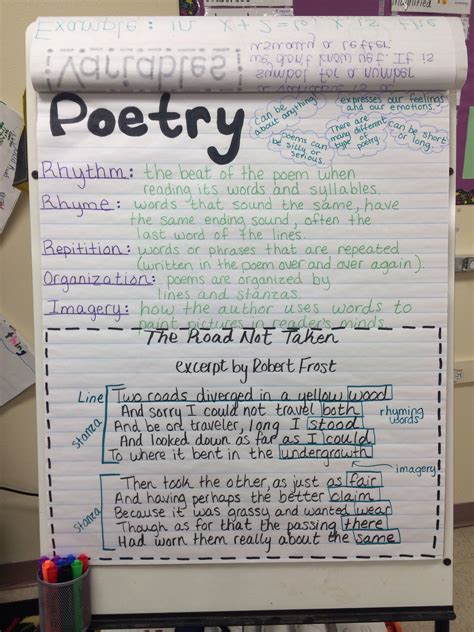 Example: in x + 2 = 10, x is the
Variables:
a variable is a
symbol for a number
we don't know yet. It is
usually a letter
Poetry
can be
about anything!
expresses our feelings
and our emotions.
poems can
be silly or
serious.
There are
many different
type of
poetry
can be short
or long.
Rhythm: the beat of the poem when
reading its words and syllables.
Rhyme: words that sound the same, have
the same ending sound, often the
last word of the lines.
Repitition: words or phrases that are repeated
(written in the poem over and over again).
Organization: poems are organized by
lines and stanzas.
Imagery: how the author uses words to
paint pictures in reader's minds.
The Road Not Taken
excerpt by Robert Frost
Line
Two roads diverged in a yellow wood
And sorry I could not travel both
And be one traveler, long I stood
And looked down as far as I could
To where it bent in the undergrowth
stanza
rhyming
words
imagery
Then took the other, as just as fair
And having perhaps the better claim
Because it was grassy and wanted wear
Though as for that the passing there
Had worn them really about the same
stanza